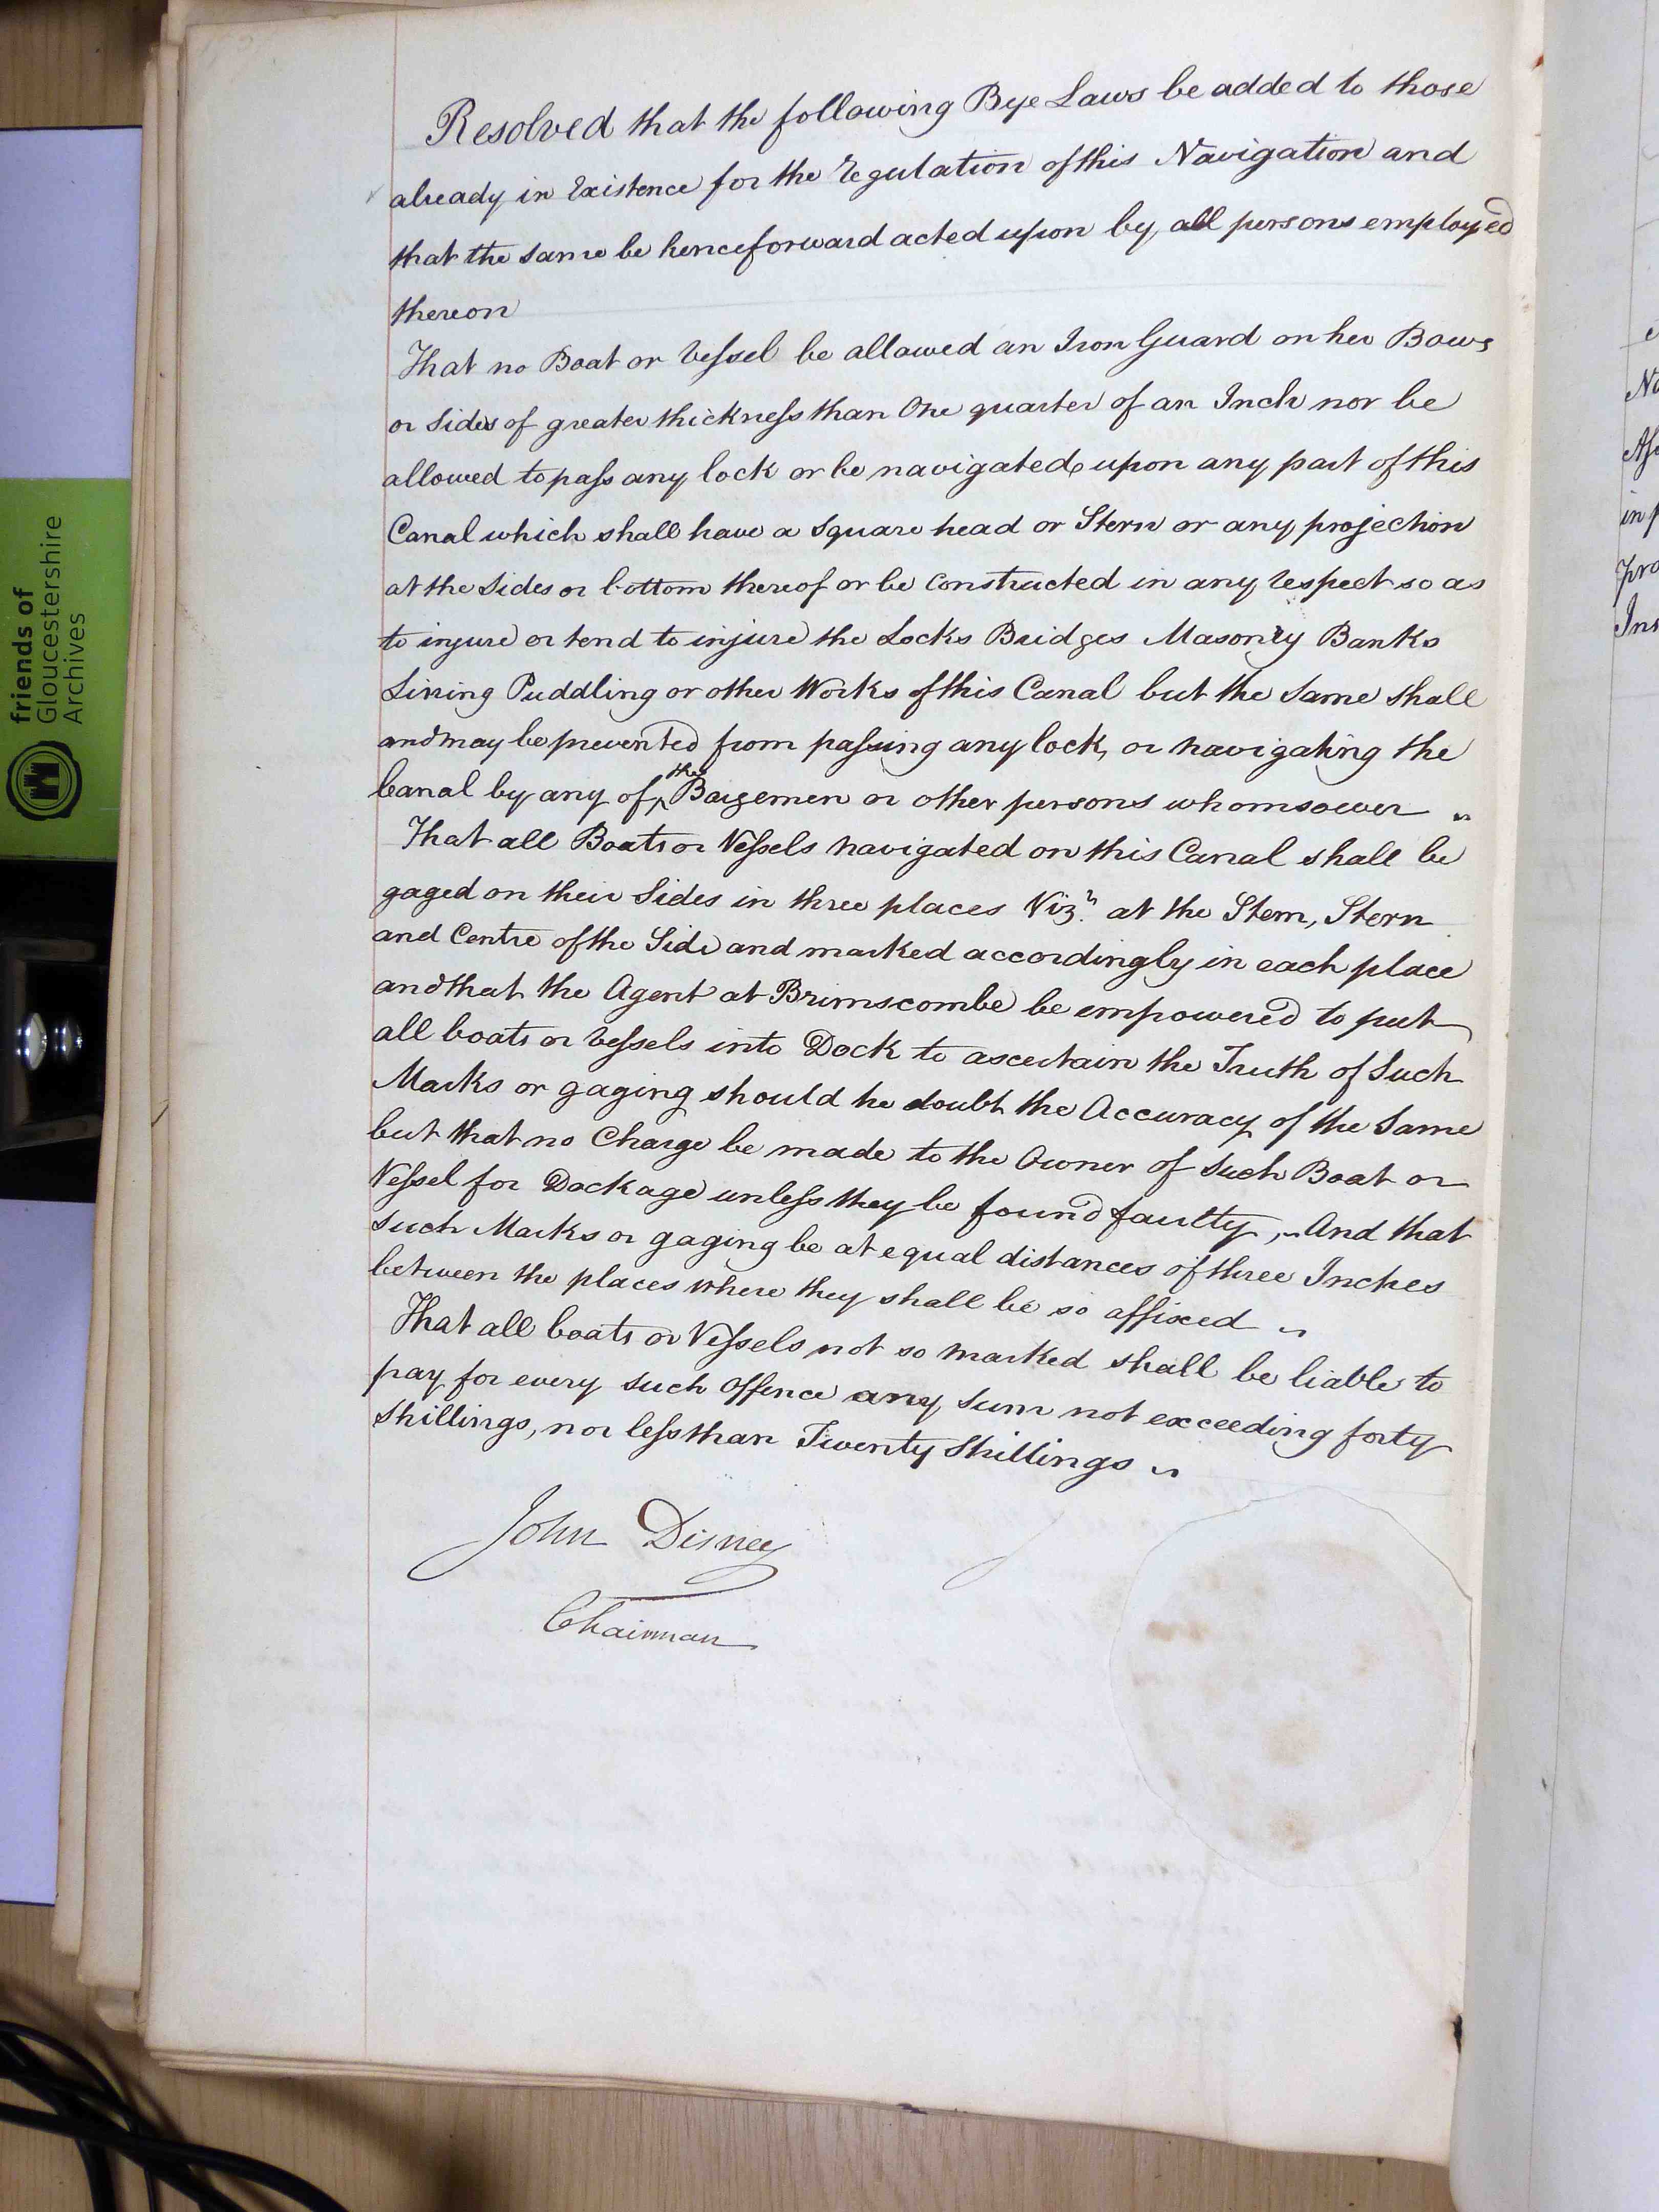 Resolved that the following Bye Laws be added to those
already in Existence for the regulation of this Navigation and
that the same be henceforward acted upon by all persons employed
thereon
That no Boat or Vessel be allowed an Iron Guard on her Bows
or Sides of greater thickness than One quarter of an Inch nor be
allowed to pass any lock or be navigated upon any part of this
Canal which shall have a Square head or Stern or any projection
at the Sides or bottom thereof or be Constructed in any respect so as
to injure or tend to injure the Locks Bridges Masonry Banks
Lining Puddling or other Works of this Canal but the Same Shall
and may be prevented from passing any lock, or navigating the
Canal by any of the Bargemen or other persons whomsoever
That all Boats or Vessels navigated on this Canal shall be
gaged on their Sides in three places Viz.t at the Stem, Stern
and Centre of the Side and marked accordingly in each place
and that the Agent at Brimscombe be empowered to put
all boats or Vessels into Dock to ascertain the Truth of Such
Marks or gaging should he doubt the Accuracy of the Same
but that no Charge be made to the Owner of Such Boat or
Vessel for Dockage unless they be found faulty, And that
Such Marks or gaging be at equal distances of three Inches
between the places where they shall be so affixed
That all boats or Vessels not so marked shall be liable to
pay for every such Offence any Sum not exceeding forty
Shillings, nor less than Twenty Shillings
John Disney
Chairman
friends of
Gloucestershire
Archives
in
pro